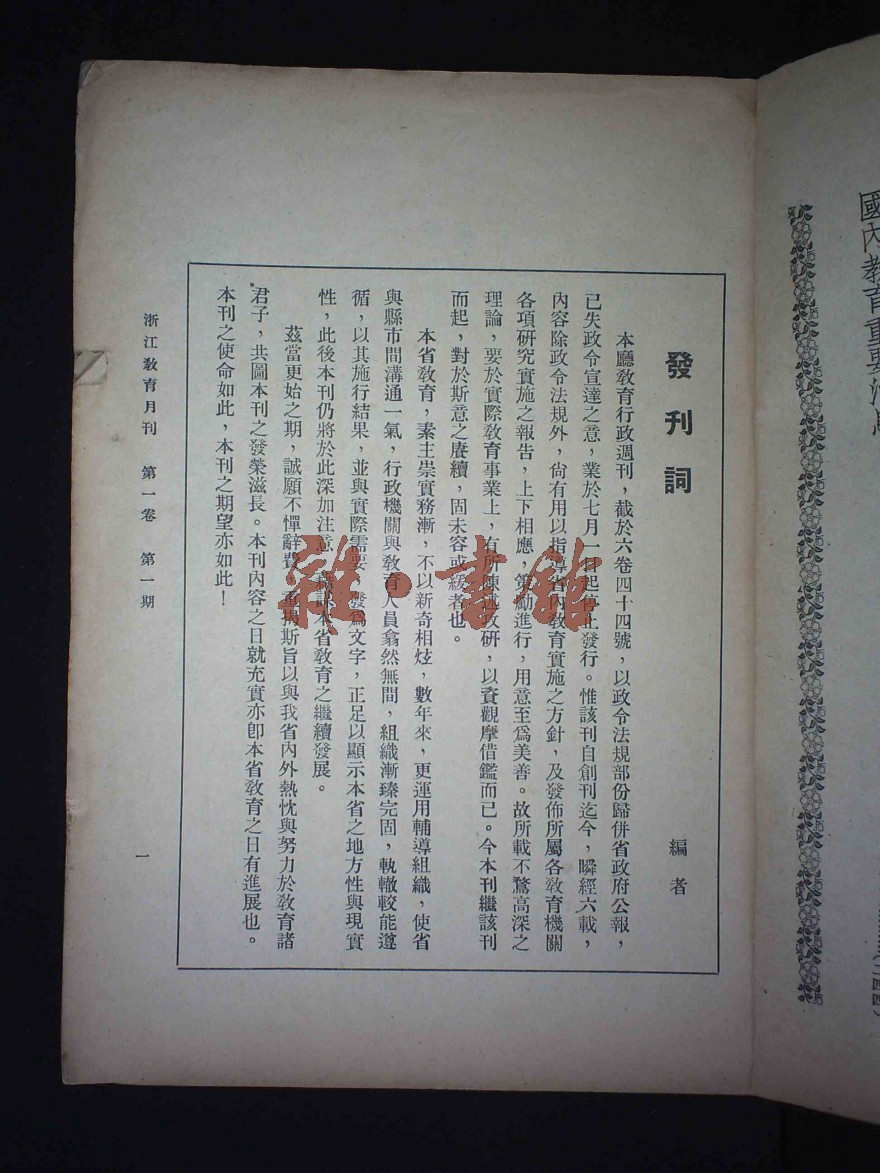 國內教育重要消息
二四四)
發刊詞
編者
本廳教育行政週刊，截於六卷四十四號，以政令法規部份歸併省政府公報，
已失政令宣達之意，業於七月一日起停止發行。惟該刊自創刊迄今，瞬經六載，
內容除政令法規外，尙有用以指導省內教育實施之方針，及發佈所屬各教育機關
各項硏究實施之報吿，上下相應，策勵進行，用意至爲美善。故所載不騖高深之
理論，要於實際教育事業上，有所陳述攻研，以資觀摩借鑑而已。今本刊繼該刊
而起，對於斯意之賡續，固未容或緩者也。
本省教育，素主崇實務漸，不以新奇相炫，數年來，更運用輔導組織，使省
與縣市間溝通一氣，行政機關與教育人員翕然無間，組織漸臻完固，執轍較能遵
循，以其施行結果，並與實際需要，發爲文字，正足以顯示本省之地方性與現實
性，此後本刊仍將於此深加注意，謀本省教育之繼續發展。
茲當更始之期，誠願不憚辭費，重揭斯旨以與我省內外熱忱與努力於教育諸
君子，共圖本刊之發榮滋長。本刊內容之日就充實亦卽本省教育之日有進展也。
本刊之使命如此，本刊之期望亦如此！
浙江教育月刊　第一卷　第一期
一
雜·書館